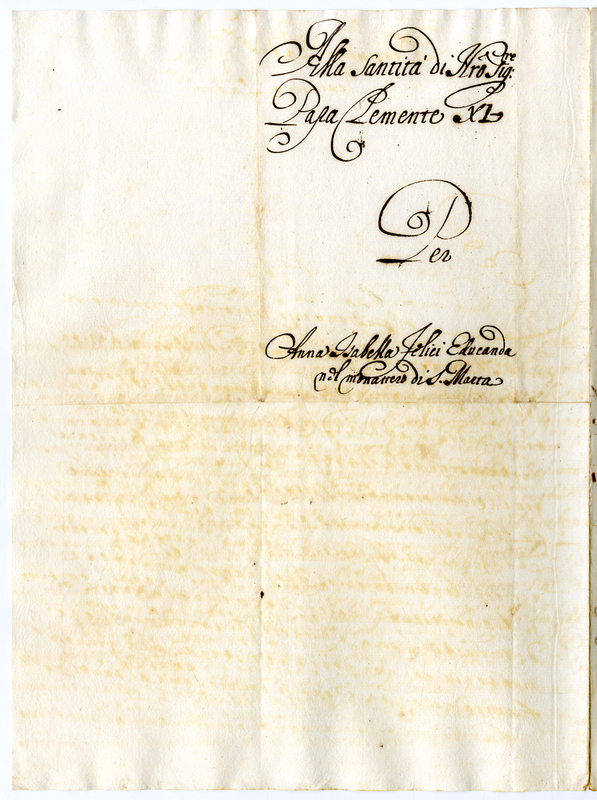 Alla Santità di Nr̃o Sig:re
Papa Clemente XI
Per
Anna Isabella Felici Educanda
nel monastero di S. Marta